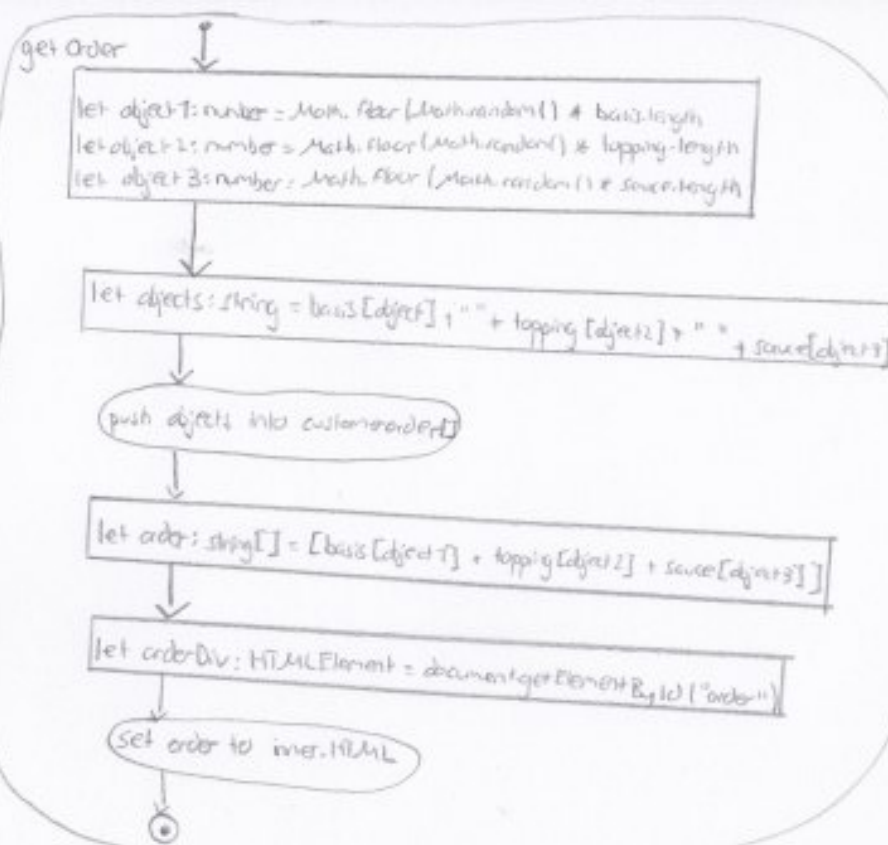 get Order
let object1: number = Math.floor(Math.random() * basis.length
let object2: number = Math.floor(Math.random() * topping.length
let object3: number = Math.floor(Math.random() * sauce.length
let objects: string = basis[object], " " + topping[object2] + " " + sauce[object3]
push objects into customerorder[]
let order: string[] = [basis[object1] + topping[object2] + sauce[object3]]
let orderDiv: HTMLElement = document.getElementById("order")
set order to inner.HTML